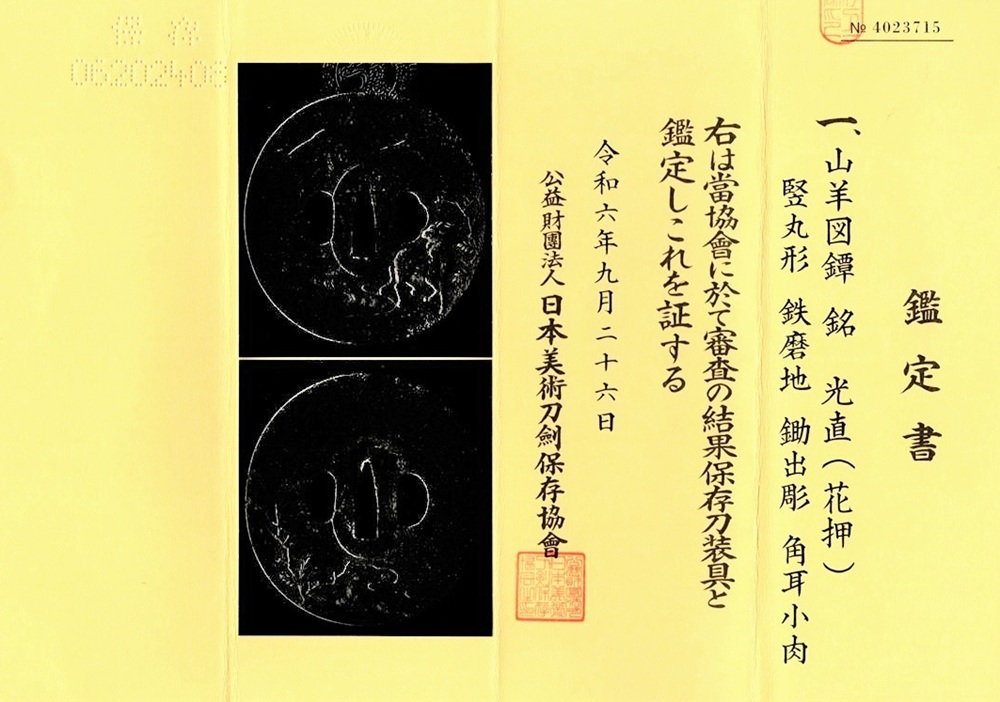 № 4023715
鑑定書
一、山羊図鐔 銘 光直(花押)
竪丸形 鉄磨地 鋤出彫 角耳小肉
右は當協會に於て審査の結果保存刀装具と
鑑定しこれを証する
令和六年九月二十六日
公益財團法人 日本美術刀劍保存協會
保存
06202408